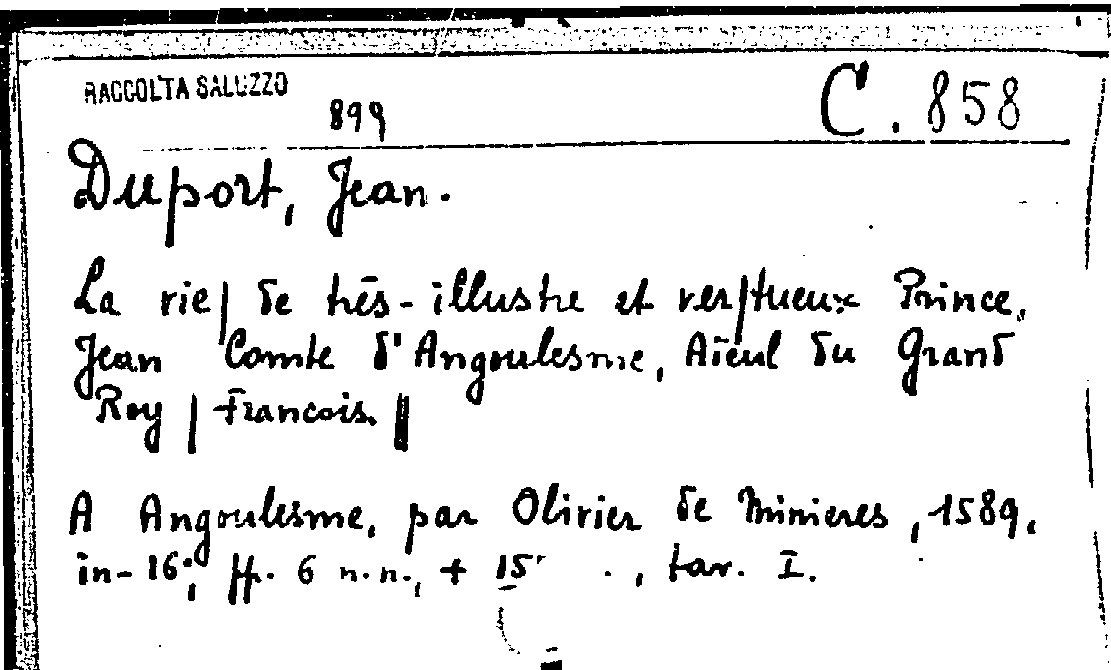 RACCOLTA SALUZZO
899
C. 858
Duport, Jean.
La vie | de très-illustre et ver|tueux Prince,
Jean Comte d'Angoulesme, Aïeul du Grand
Roy | Francois. ||
A Angoulesme, par Olivier de Minieres, 1589.
in-16°, ff. 6 n.n., + 15 , tav. I.